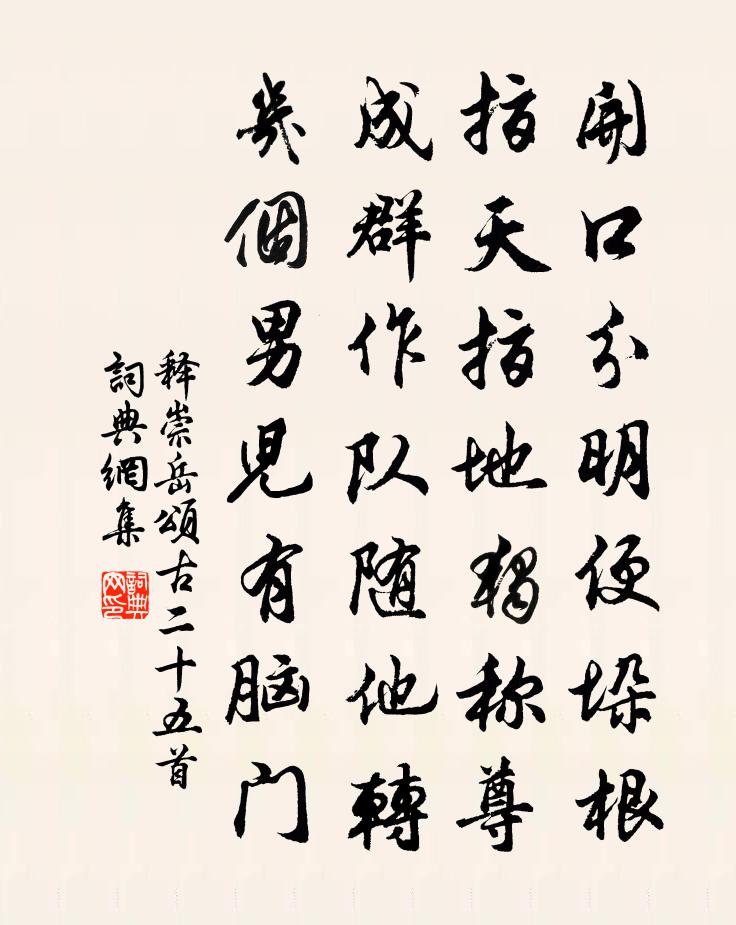 開口分明便垛根
指天指地獨称尊
成群作队随他轉
幾個男児有脑门
释崇岳頌古二十五首
詞典網集
詞典网印